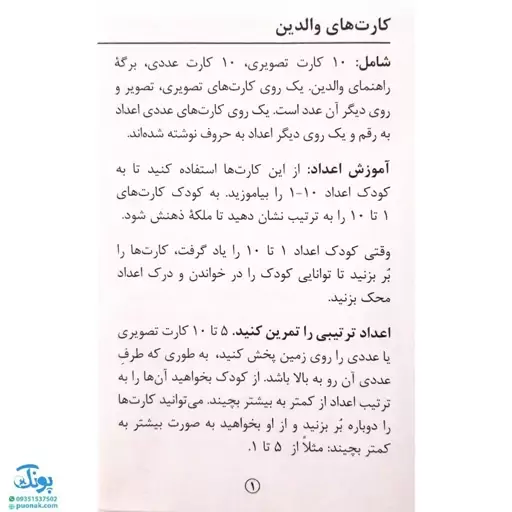 کارت‌های والدین
شامل: ۱۰ کارت تصویری، ۱۰ کارت عددی، برگهٔ
راهنمای والدین. یک روی کارت‌های تصویری، تصویر و
روی دیگر آن عدد است. یک روی کارت‌های عددی اعداد
به رقم و یک روی دیگر اعداد به حروف نوشته شده‌اند.
آموزش اعداد: از این کارت‌ها استفاده کنید تا به
کودک اعداد ۱۰-۱ را بیاموزید. به کودک کارت‌های
۱ تا ۱۰ را به ترتیب نشان دهید تا ملکهٔ ذهنش شود.
وقتی کودک اعداد ۱ تا ۱۰ را یاد گرفت، کارت‌ها را
بُر بزنید تا توانایی کودک را در خواندن و درک اعداد
محک بزنید.
اعداد ترتیبی را تمرین کنید. ۵ تا ۱۰ کارت تصویری
یا عددی را روی زمین پخش کنید، به طوری که طرفِ
عددی آن رو به بالا باشد. از کودک بخواهید آن‌ها را به
ترتیب اعداد از کمتر به بیشتر بچیند. می‌توانید کارت‌ها
را دوباره بُر بزنید و از او بخواهید به صورت بیشتر به
کمتر بچیند: مثلاً از ۵ تا ۱.
۱
پونک
09351537502
puonak.com